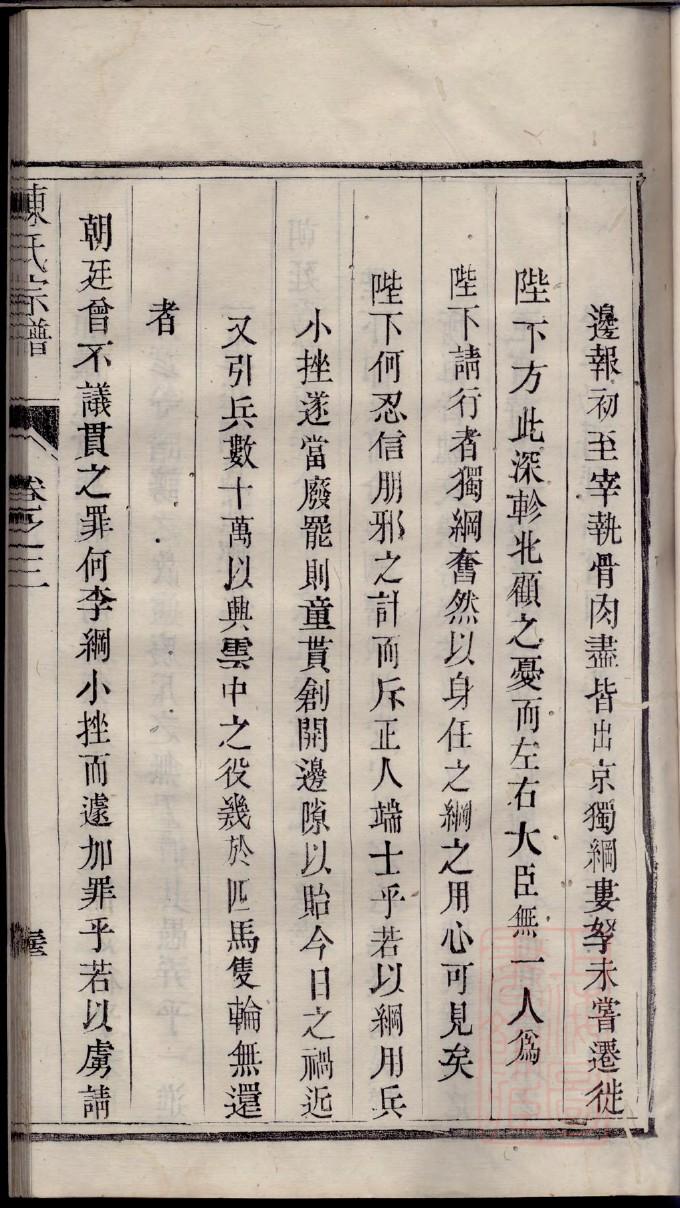 邊報初至宰執骨肉盡皆出京獨綱妻孥未嘗遷徙
陛下方此深軫北顧之憂而左右大臣無一人爲
陛下請行者獨綱奮然以身任之綱之用心可見矣
陛下何忍信朋邪之計而斥正人端士乎若以綱用兵
小挫遂當廢罷則童貫創開邊隙以貽今日之禍近
又引兵數十萬以興雲中之役幾於匹馬隻輪無還
者
朝廷曾不議貫之罪何李綱小挫而遽加罪乎若以虜請
陳氏宗譜
卷之三